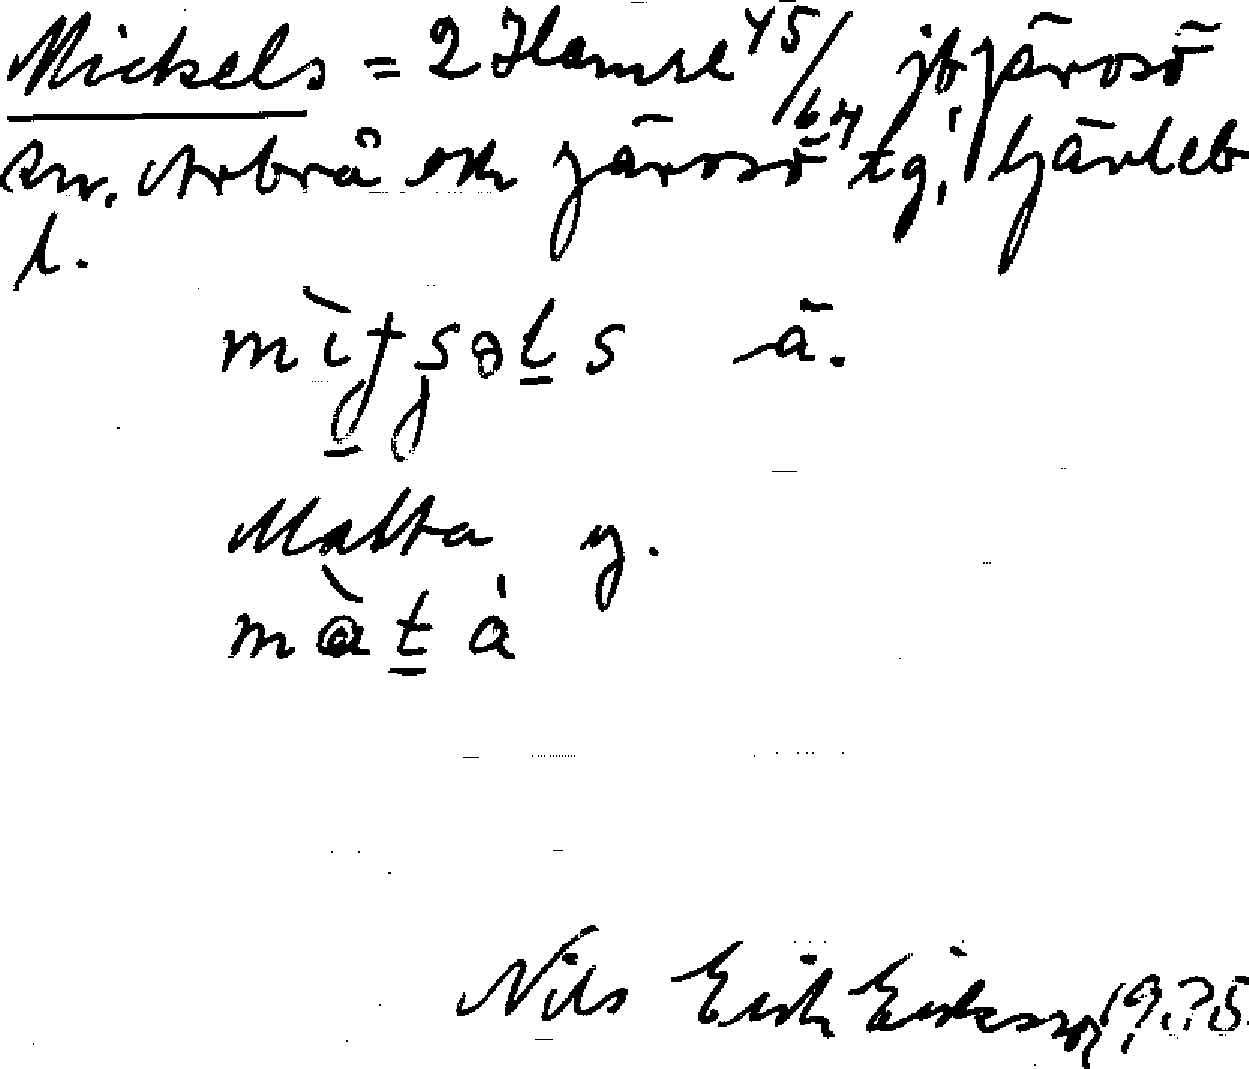 Mickels = 2 Hamre 45/64 jb, Järvsö
sn, Arbrå och Järvsö tg, Gävleb
l.
mi̱tsəls ä.
Matta y.
màta
Nils Erik Eriksson, 1935